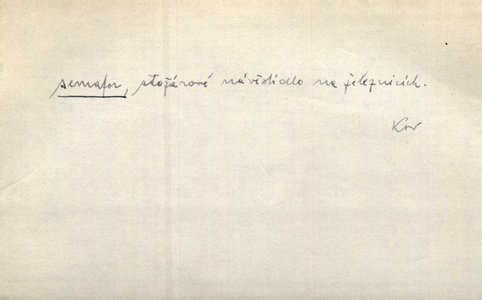 semafor, stožárové návěstidlo na železnicích.
Kov